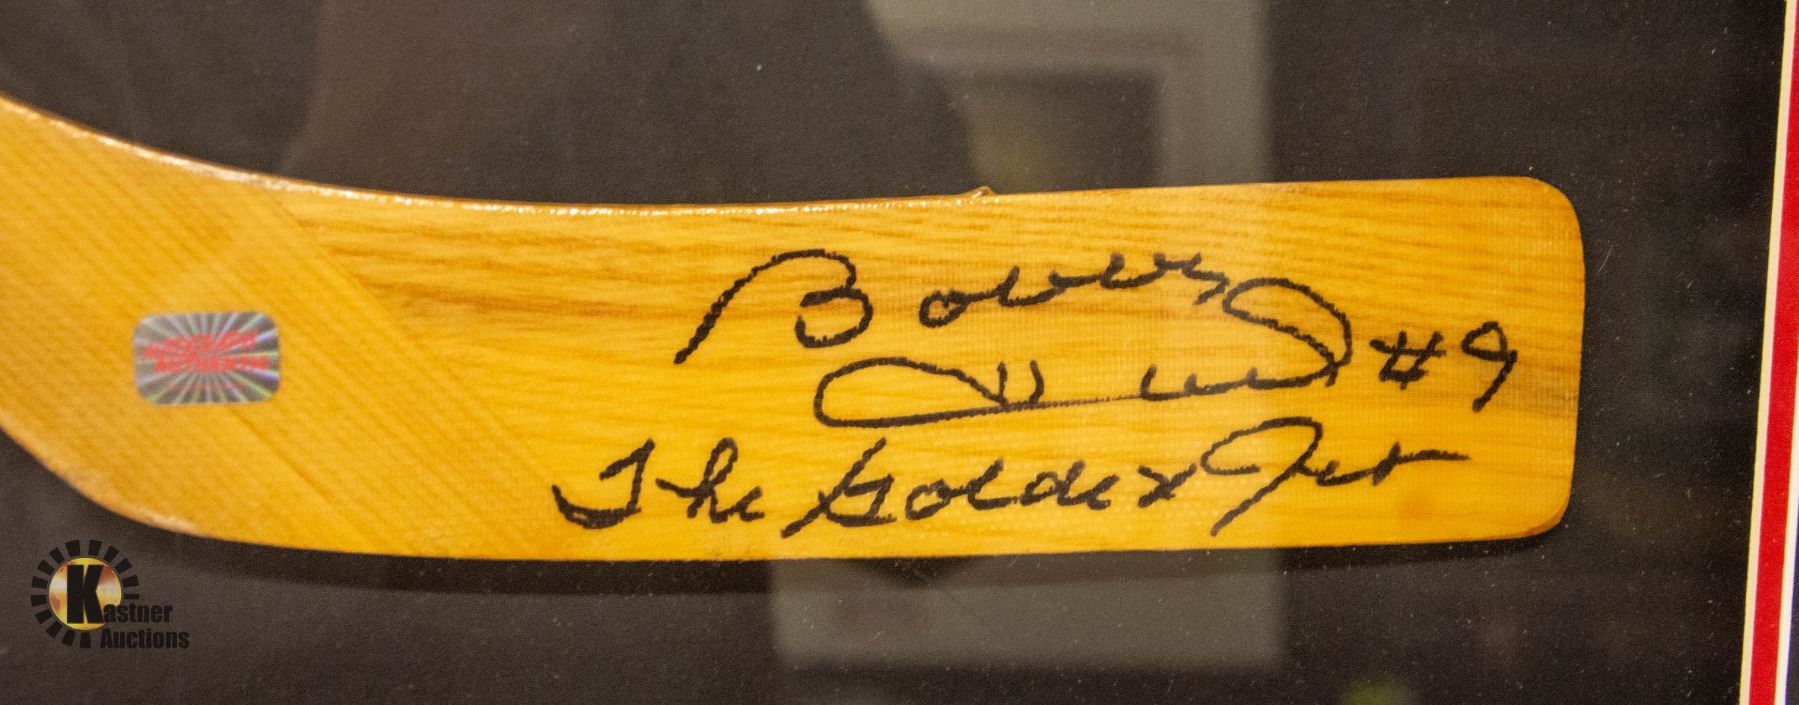 Bobby
Hull #9
The Golden Jet
AUTHENTIC
Kastner
Auctions